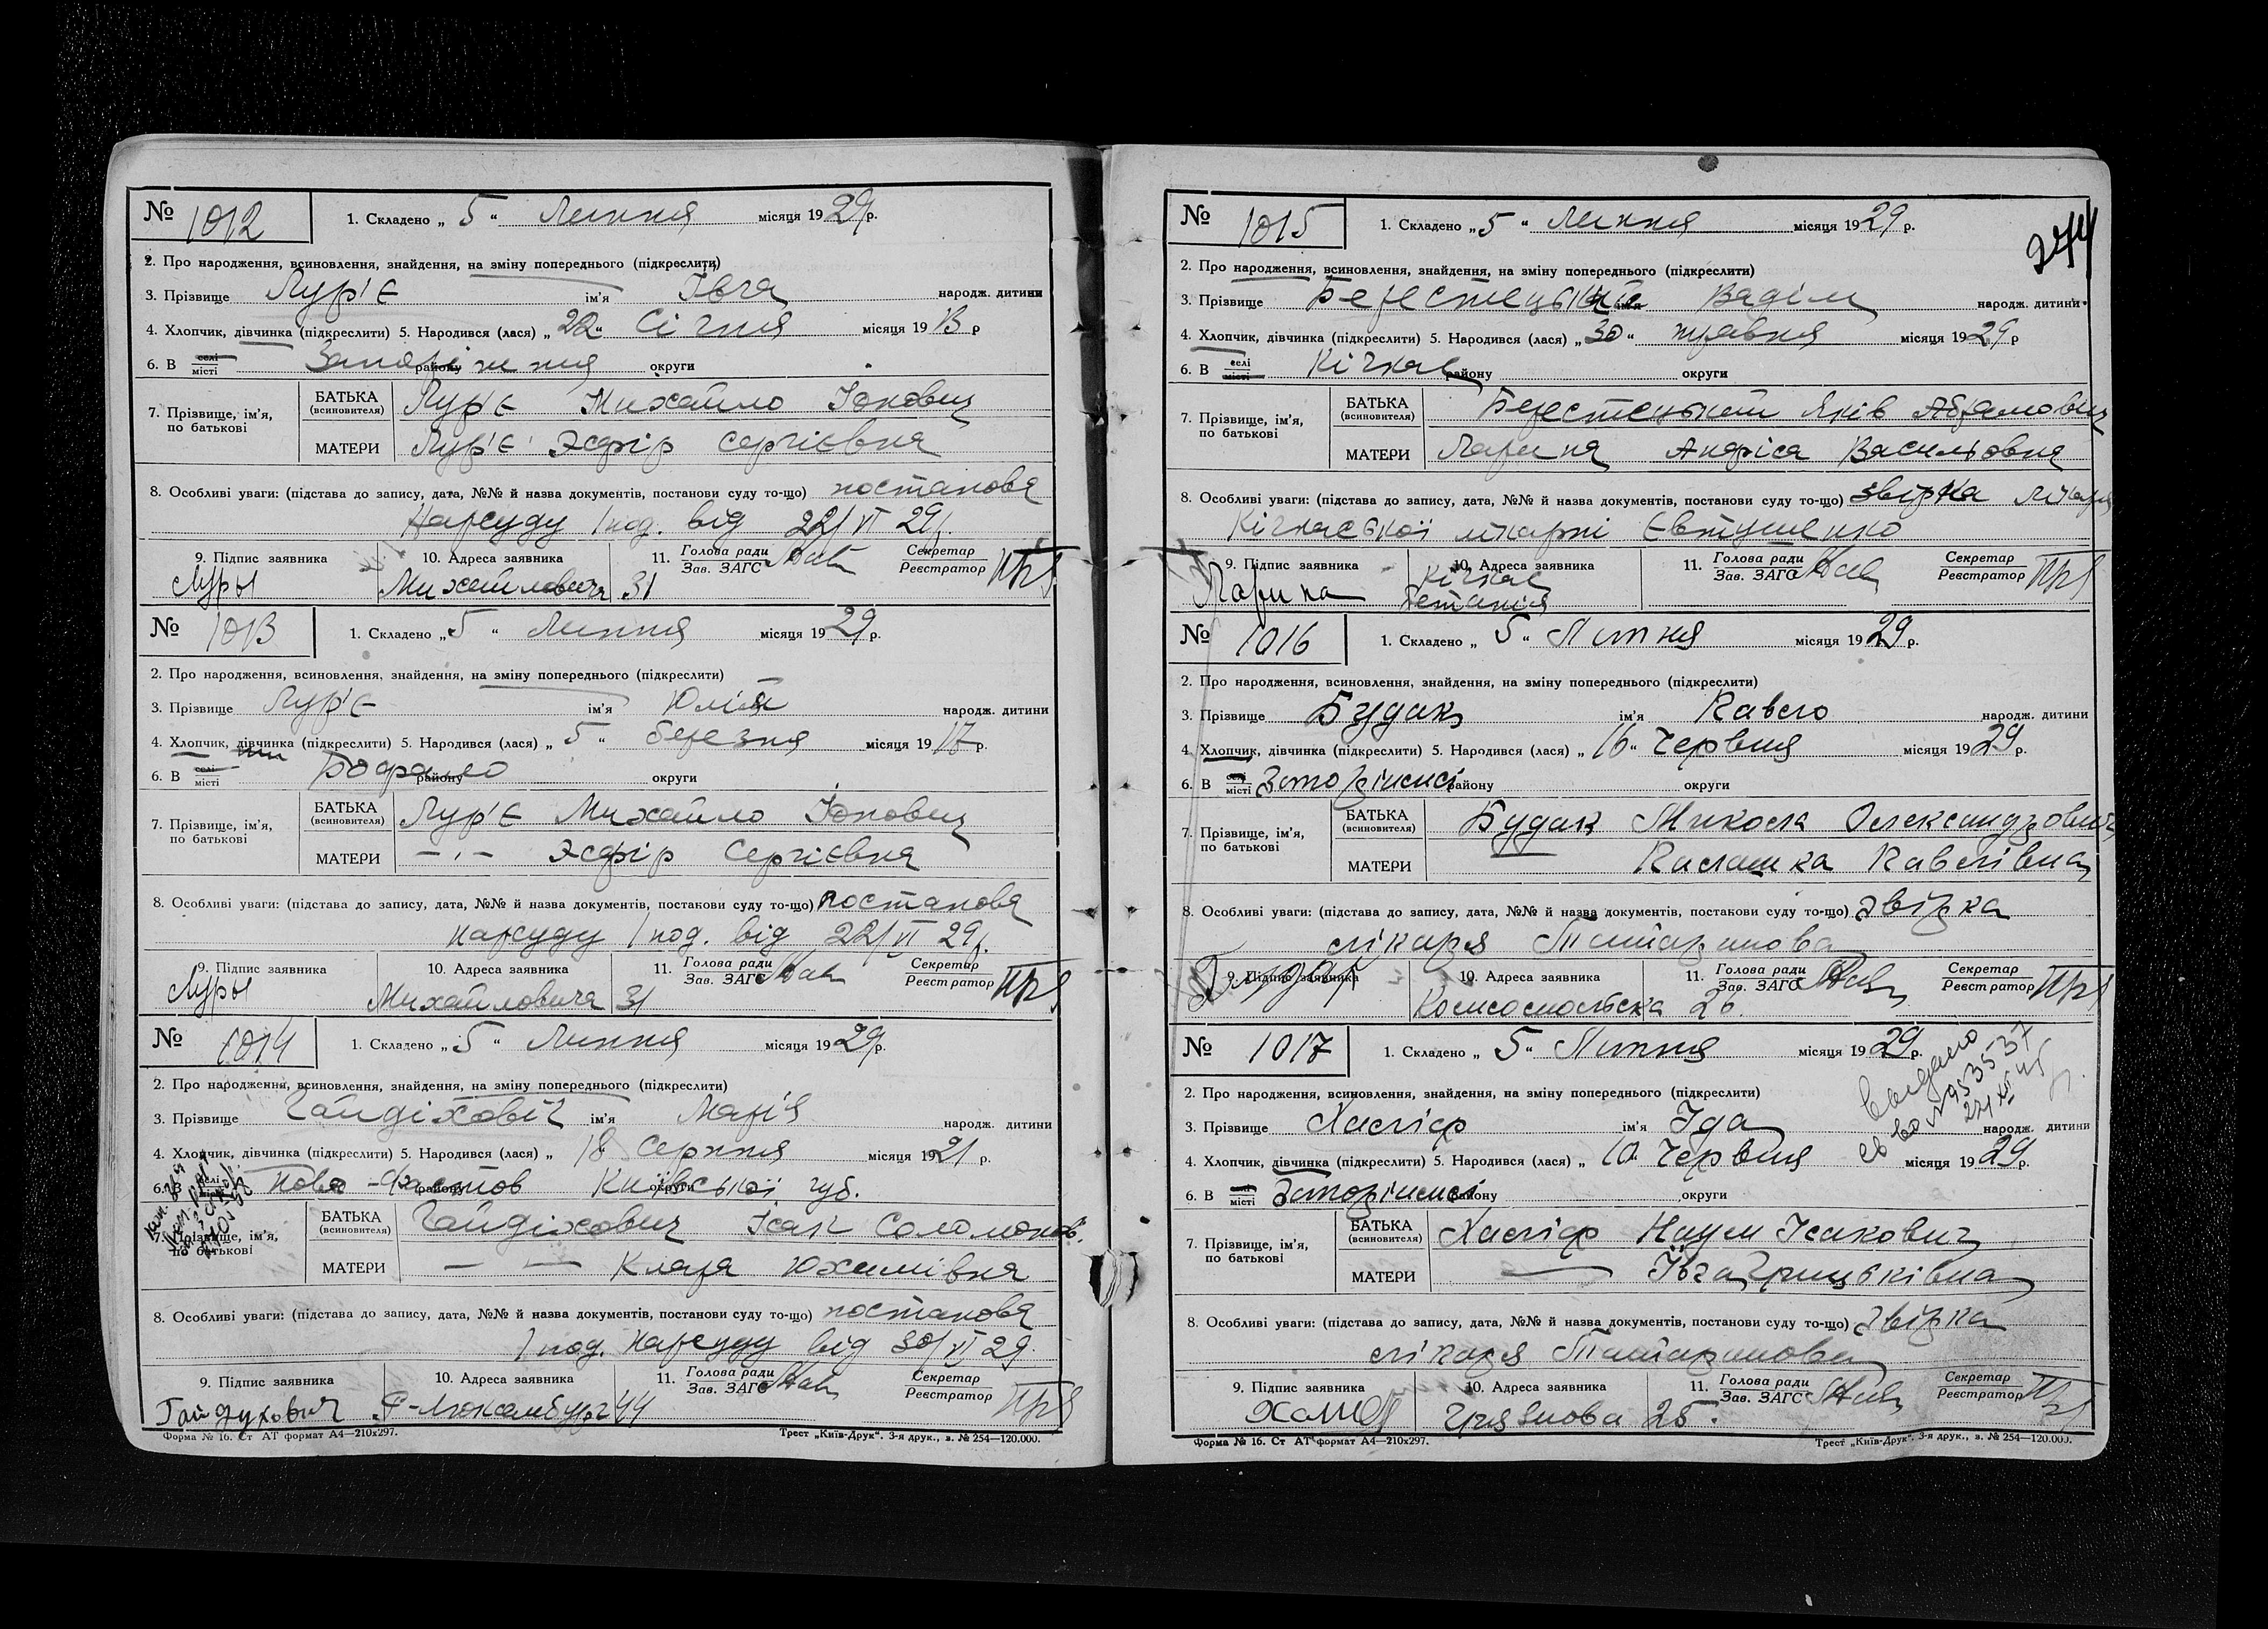 № 1012 1. Складено „ 5 “ Липня місяця 1929 р.
2. Про народження, всиновлення, знайдення, на зміну попереднього (підкреслити)
3. Прізвище Лур'є ім'я Івга народж. дитини
4. Хлопчик, дівчинка (підкреслити) 5. Народився (лася) „ 22 “ Січня місяця 1913 р
6. В селі місті Запоріжжя району округи
7. Прізвище, ім'я, по батькові БАТЬКА (всиновителя) Лур'є Михайло Юнович
МАТЕРИ Лур'є Эсфір Сергієвна
8. Особливі уваги: (підстава до запису, дата, №№ й назва документів, постанови суду то-що) постанова
нарсуду 1 под. від 22/VI 29р.
9. Підпис заявника 10. Адреса заявника 11. Голова ради Зав. ЗАГС Секретар Реєстратор
Лурье Михайловича 31
№ 1013 1. Складено „ 5 “ Липня місяця 1929 р.
2. Про народження, всиновлення, знайдення, на зміну попереднього (підкреслити)
3. Прізвище Лур'є ім'я Юлій народж. дитини
4. Хлопчик, дівчинка (підкреслити) 5. Народився (лася) „ 5 “ березня місяця 1917 р.
6. В селі місті району округи
7. Прізвище, ім'я, по батькові БАТЬКА (всиновителя) Лур'є Михайло Юнович
МАТЕРИ —,,— Эсфір Сергієвна
8. Особливі уваги: (підстава до запису, дата, №№ й назва документів, постанови суду то-що) постанова
нарсуду 1 под. від 22/VI 29р.
9. Підпис заявника 10. Адреса заявника 11. Голова ради Зав. ЗАГС Секретар Реєстратор
Лурье Михайловича 31
№ 1014 1. Складено „ 5 “ Липня місяця 1929 р.
2. Про народження, всиновлення, знайдення, на зміну попереднього (підкреслити)
3. Прізвище Гайдіховіч ім'я Марія народж. дитини
4. Хлопчик, дівчинка (підкреслити) 5. Народився (лася) „ 18 Серпня місяця 1921 р.
6. В селі місті Ново-Фастов району Київської округи губ.
7. Прізвище, ім'я, по батькові БАТЬКА (всиновителя) Гайдіхович Ісак Соломонов.
МАТЕРИ — — Клара Юхимівна
8. Особливі уваги: (підстава до запису, дата, №№ й назва документів, постанови суду то-що) постанова
1 под. нарсуду від 30/VI 29.
9. Підпис заявника 10. Адреса заявника 11. Голова ради Зав. ЗАГС Секретар Реєстратор
Гайдухович Р-Люксембург 44
Форма № 16. Ст АТ формат А4—210х297. Трест „Київ-Друк“. 3-я друк., з. № 254—120.000.
274
№ 1015 1. Складено „ 5 “ Липня місяця 1929 р.
2. Про народження, всиновлення, знайдення, на зміну попереднього (підкреслити)
3. Прізвище Берестецький ім'я Вадім народж. дитини
4. Хлопчик, дівчинка (підкреслити) 5. Народився (лася) „ 30 “ травня місяця 1929 р
6. В селі місті Кічкас району округи
7. Прізвище, ім'я, по батькові БАТЬКА (всиновителя) Берестецький Яків Абрамович
МАТЕРИ Ларина Анфіса Васильовна
8. Особливі уваги: (підстава до запису, дата, №№ й назва документів, постанови суду то-що) звірка лікаря
Кічкаської лікарні Євтушенко
9. Підпис заявника 10. Адреса заявника 11. Голова ради Зав. ЗАГС Секретар Реєстратор
Ларина Кічкас
№ 1016 1. Складено „ 5 “ Липня місяця 1929 р.
2. Про народження, всиновлення, знайдення, на зміну попереднього (підкреслити)
3. Прізвище Будак ім'я Павло народж. дитини
4. Хлопчик, дівчинка (підкреслити) 5. Народився (лася) „ 16 “ Червня місяця 1929 р.
6. В селі місті Запоріжжі району округи
7. Прізвище, ім'я, по батькові БАТЬКА (всиновителя) Будак Микола Олександрович
МАТЕРИ — Палашка Павлівна
8. Особливі уваги: (підстава до запису, дата, №№ й назва документів, постанови суду то-що) звірка
лікаря Татаринова
9. Підпис заявника 10. Адреса заявника 11. Голова ради Зав. ЗАГС Секретар Реєстратор
Комсомольська 26.
№ 1017 1. Складено „ 5 “ Липня місяця 1929 р.
выдано
св во № 953537
2. Про народження, всиновлення, знайдення, на зміну попереднього (підкреслити)
3. Прізвище Халіф ім'я Іда народж. дитини
4. Хлопчик, дівчинка (підкреслити) 5. Народився (лася) „ 10 “ Червня місяця 1929 р.
6. В селі місті Запоріжжі району округи
7. Прізвище, ім'я, по батькові БАТЬКА (всиновителя) Халіф Наум Ісакович
МАТЕРИ — Івга Грицьківна
8. Особливі уваги: (підстава до запису, дата, №№ й назва документів, постанови суду то-що) звірка
лікаря Татаринова
9. Підпис заявника 10. Адреса заявника 11. Голова ради Зав. ЗАГС Секретар Реєстратор
25.
Форма № 16. Ст АТ формат А4—210х297. Трест „Київ-Друк“. 3-я друк., з. № 254—120.000.